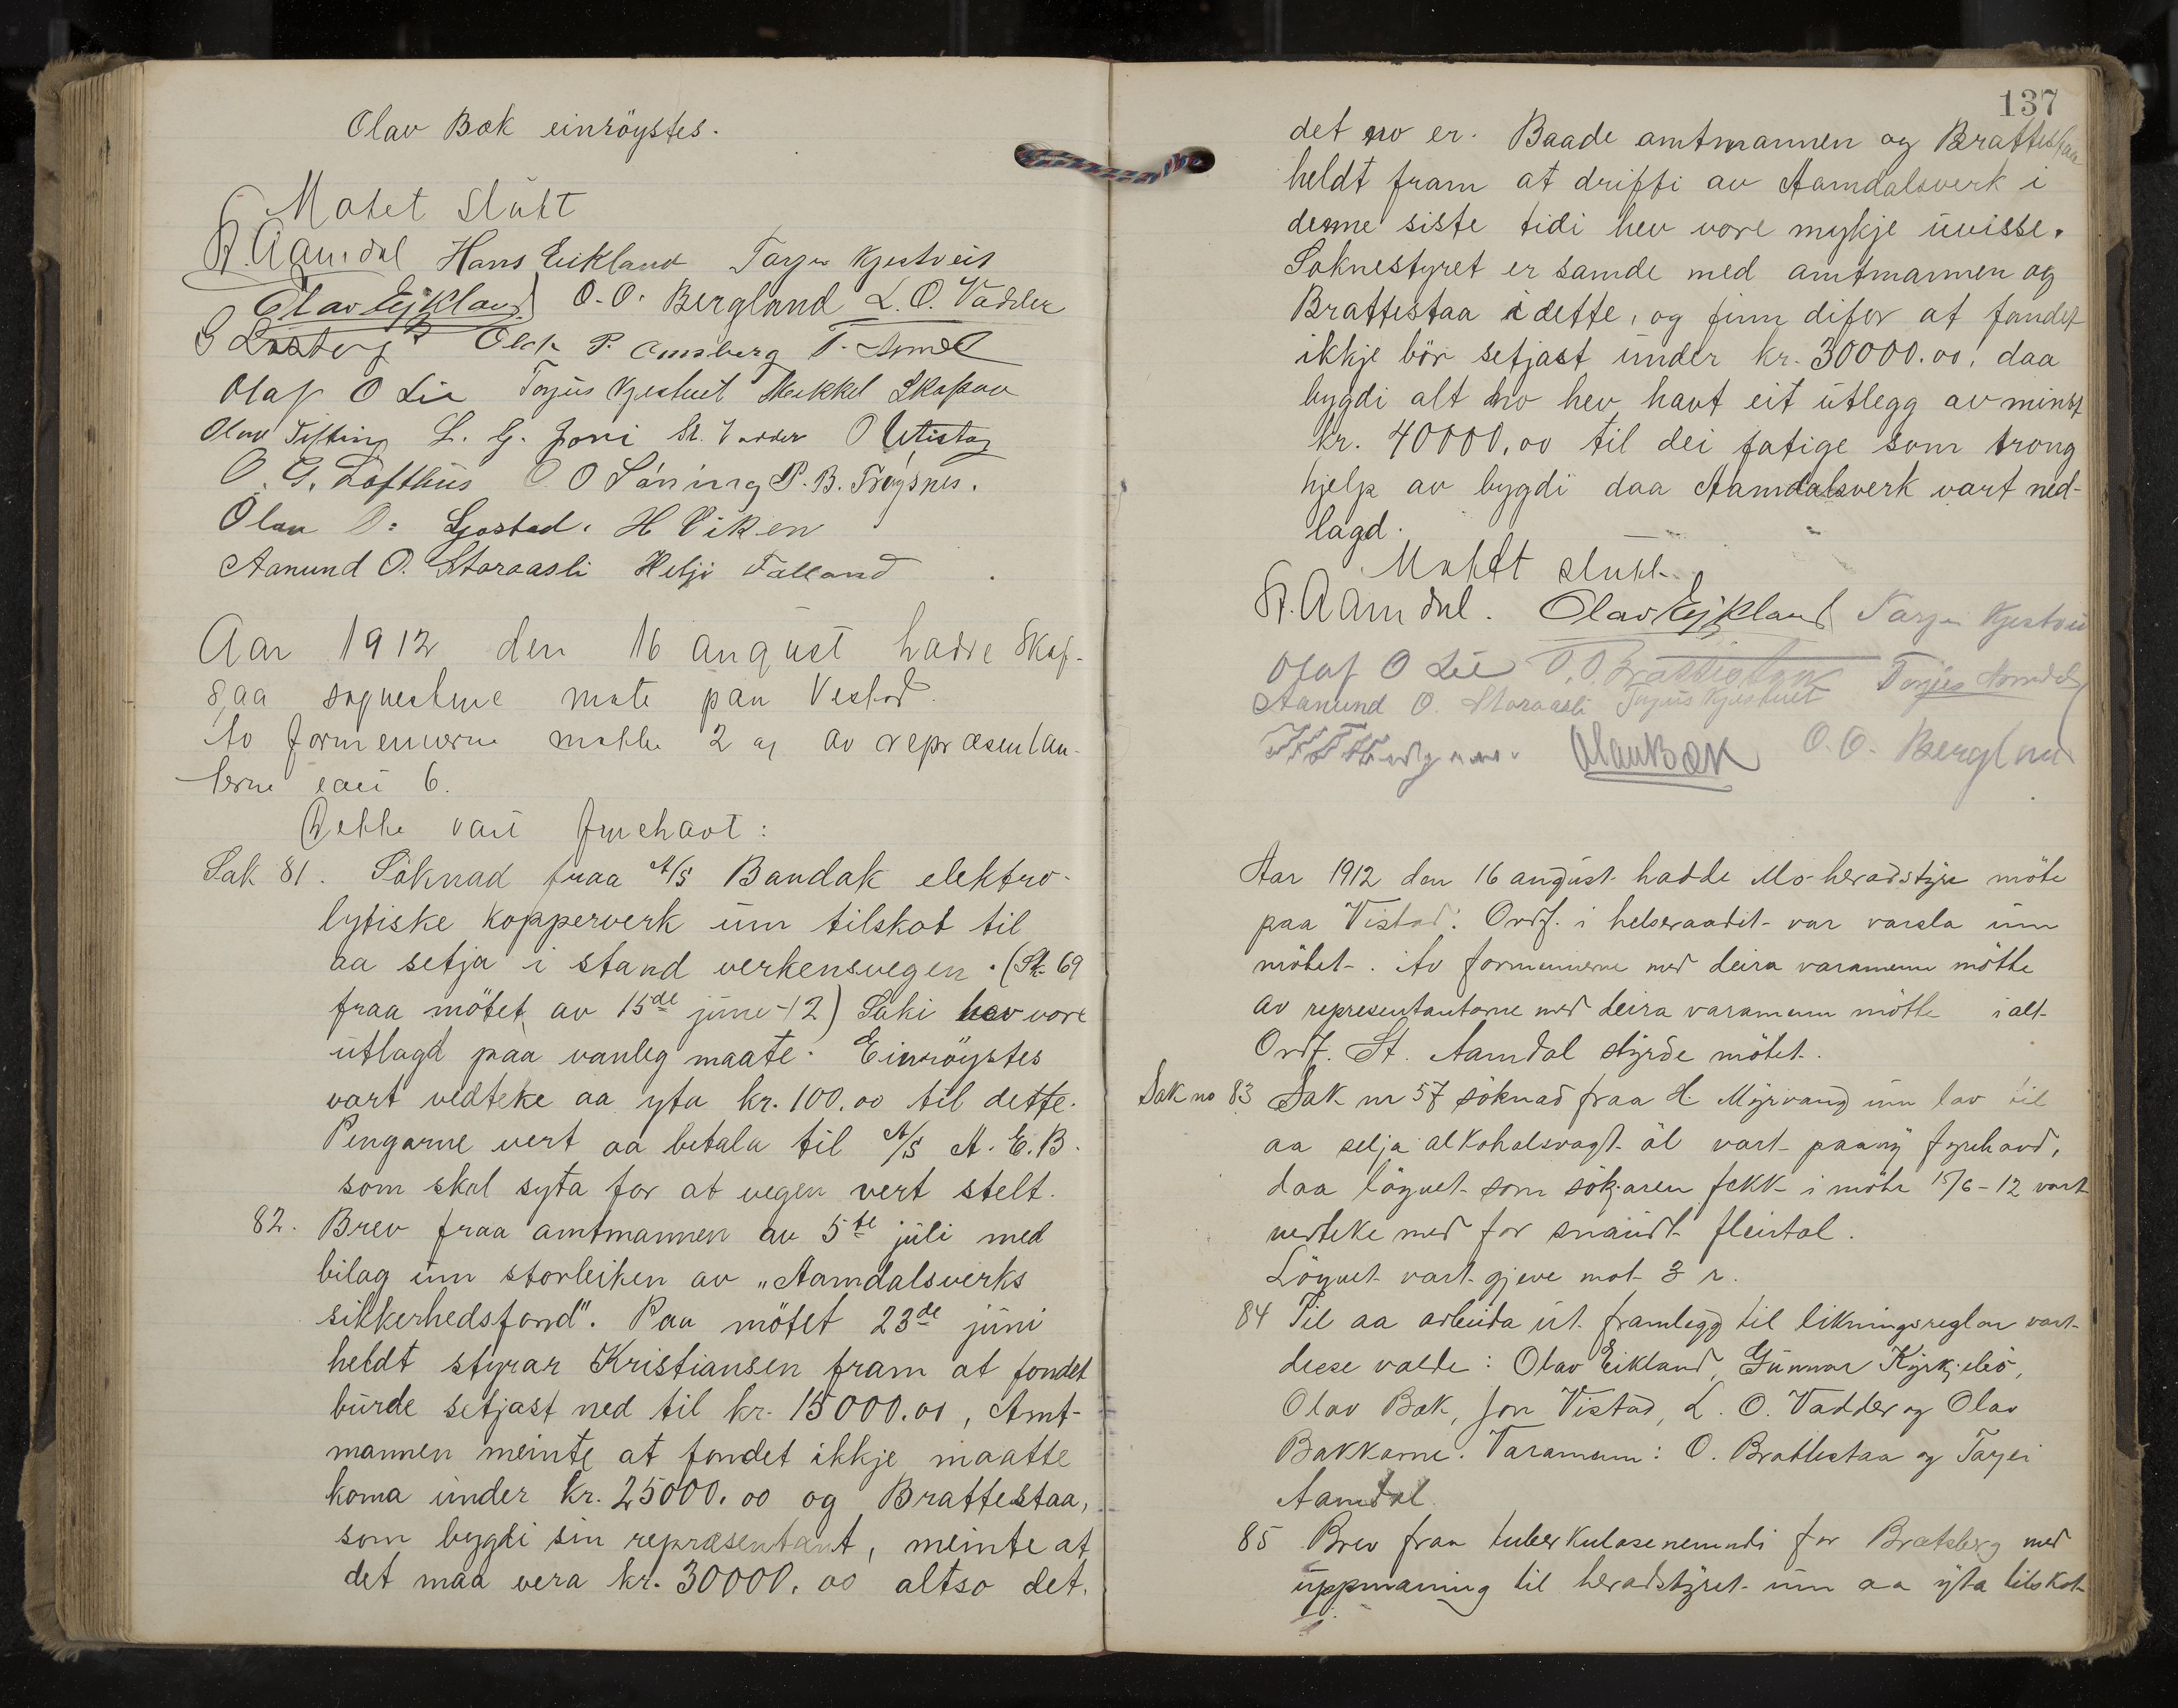 Olav Bæk einröystes.
Motet slutt
St. Aamdal Hans Eikland Tarjei Kjestveit
Olav Eikland O. O. Bergland L. O. Vadder
G P. Omsberg T. Aamdal
Olaf O Lie Torjus Kjestveit Mekkel Skafsaa
Olav Tifting L. G. St. Vadder
O. G. Lofthus O O P. B. Tröysnes.
Olav O. H Viken
Aanund O. Storaasli Helji Falland
Aar 1912 den 16 august hadde Skaf-
saa sognestyre mote paa Vestad.
Av formennerne motte 2 og av repræsentan-
terne 6.
Dette vart fyrehavt:
Sak 81. Söknad fraa A/S Bandak elektro-
lytiske kopperverk um tilskot til
aa setja i stand verkensvegen. (St. 69
fraa mötet av 15de june-12) Saki hev vore
utlagd paa vanleg maate. Einröystes
vart vedteke aa yta kr. 100.00 til dette.
Pengarne vert aa betala til A/S A. E. B.
som skal syta for at vegen vert stelt.
82. Brev fraa amtmannen av 5te juli med
bilag um storleiken av „Aamdalsverks
sikkerhedsfond". Paa mötet 23de juni
heldt styrar Kristiansen fram at fondet
burde setjast ned til kr. 15000.00, Amt-
mannen meinte at fondet ikkje maatte
koma under kr. 25000.00 og Brattestaa,
som bygdi sin repræsentant, meinte at
det maa vera kr. 30000.00 altso det.
137
det no er. Baade amtmannen og Brattestaa
heldt fram at drifti av Aamdalsverk i
denne siste tidi hev vore mykje uvisse.
Soknestyret er samde med amtmannen og
Brattestaa i dette, og finn difor at fondet
ikkje bör setjast under kr. 30000.00, daa
bygdi alt no hev havt eit utlegg av minst
kr. 40000.00 til dei fatige som trong
hjelp av bygdi daa Aamdalsverk vart ned-
lagd.
Motet slutt.
St. Aamdal. Olav Eikland Tarjei Kjestveit
Olaf O Lie O. O. Brattestaa Torjus Aamdal
Aanund O. Storaasli Torjus Kjestveit
Olav Bæk O. O. Bergland
Aar 1912 den 16 august hadde Mo heradstyre möte
paa Vistad. Ordf. i helseraadet var varsla um
mötet. Av formennerne med deira varamenn mötte
av representantarne med deira varamenn mötte i alt
Ordf. St. Aamdal styrde mötet.
Sak no 83 Sak nr 57 söknad fraa H. Myrvang um lov til
aa selja alkoholsvagt öl vart paany fyrehavd,
daa löyvet som sökjaren fekk i möte 15/6-12 vart
vedteke med for snaudt fleirtal.
Löyvet vart gjeve mot 3 r.
84 Til aa arbeida ut framlegg til likningsreglar vart
desse valde: Olav Eikland, Gunnar Kyrkjebö,
Olav Bæk, Jon Vistad, L. O. Vadder og Olav
Bakkarne. Varamenn: O. Brattestaa og Tarjei
Aamdal
85 Brev fraa tuberkulosenemndi for Bratsberg med
uppmaning til heradstyret um aa yta tilskot